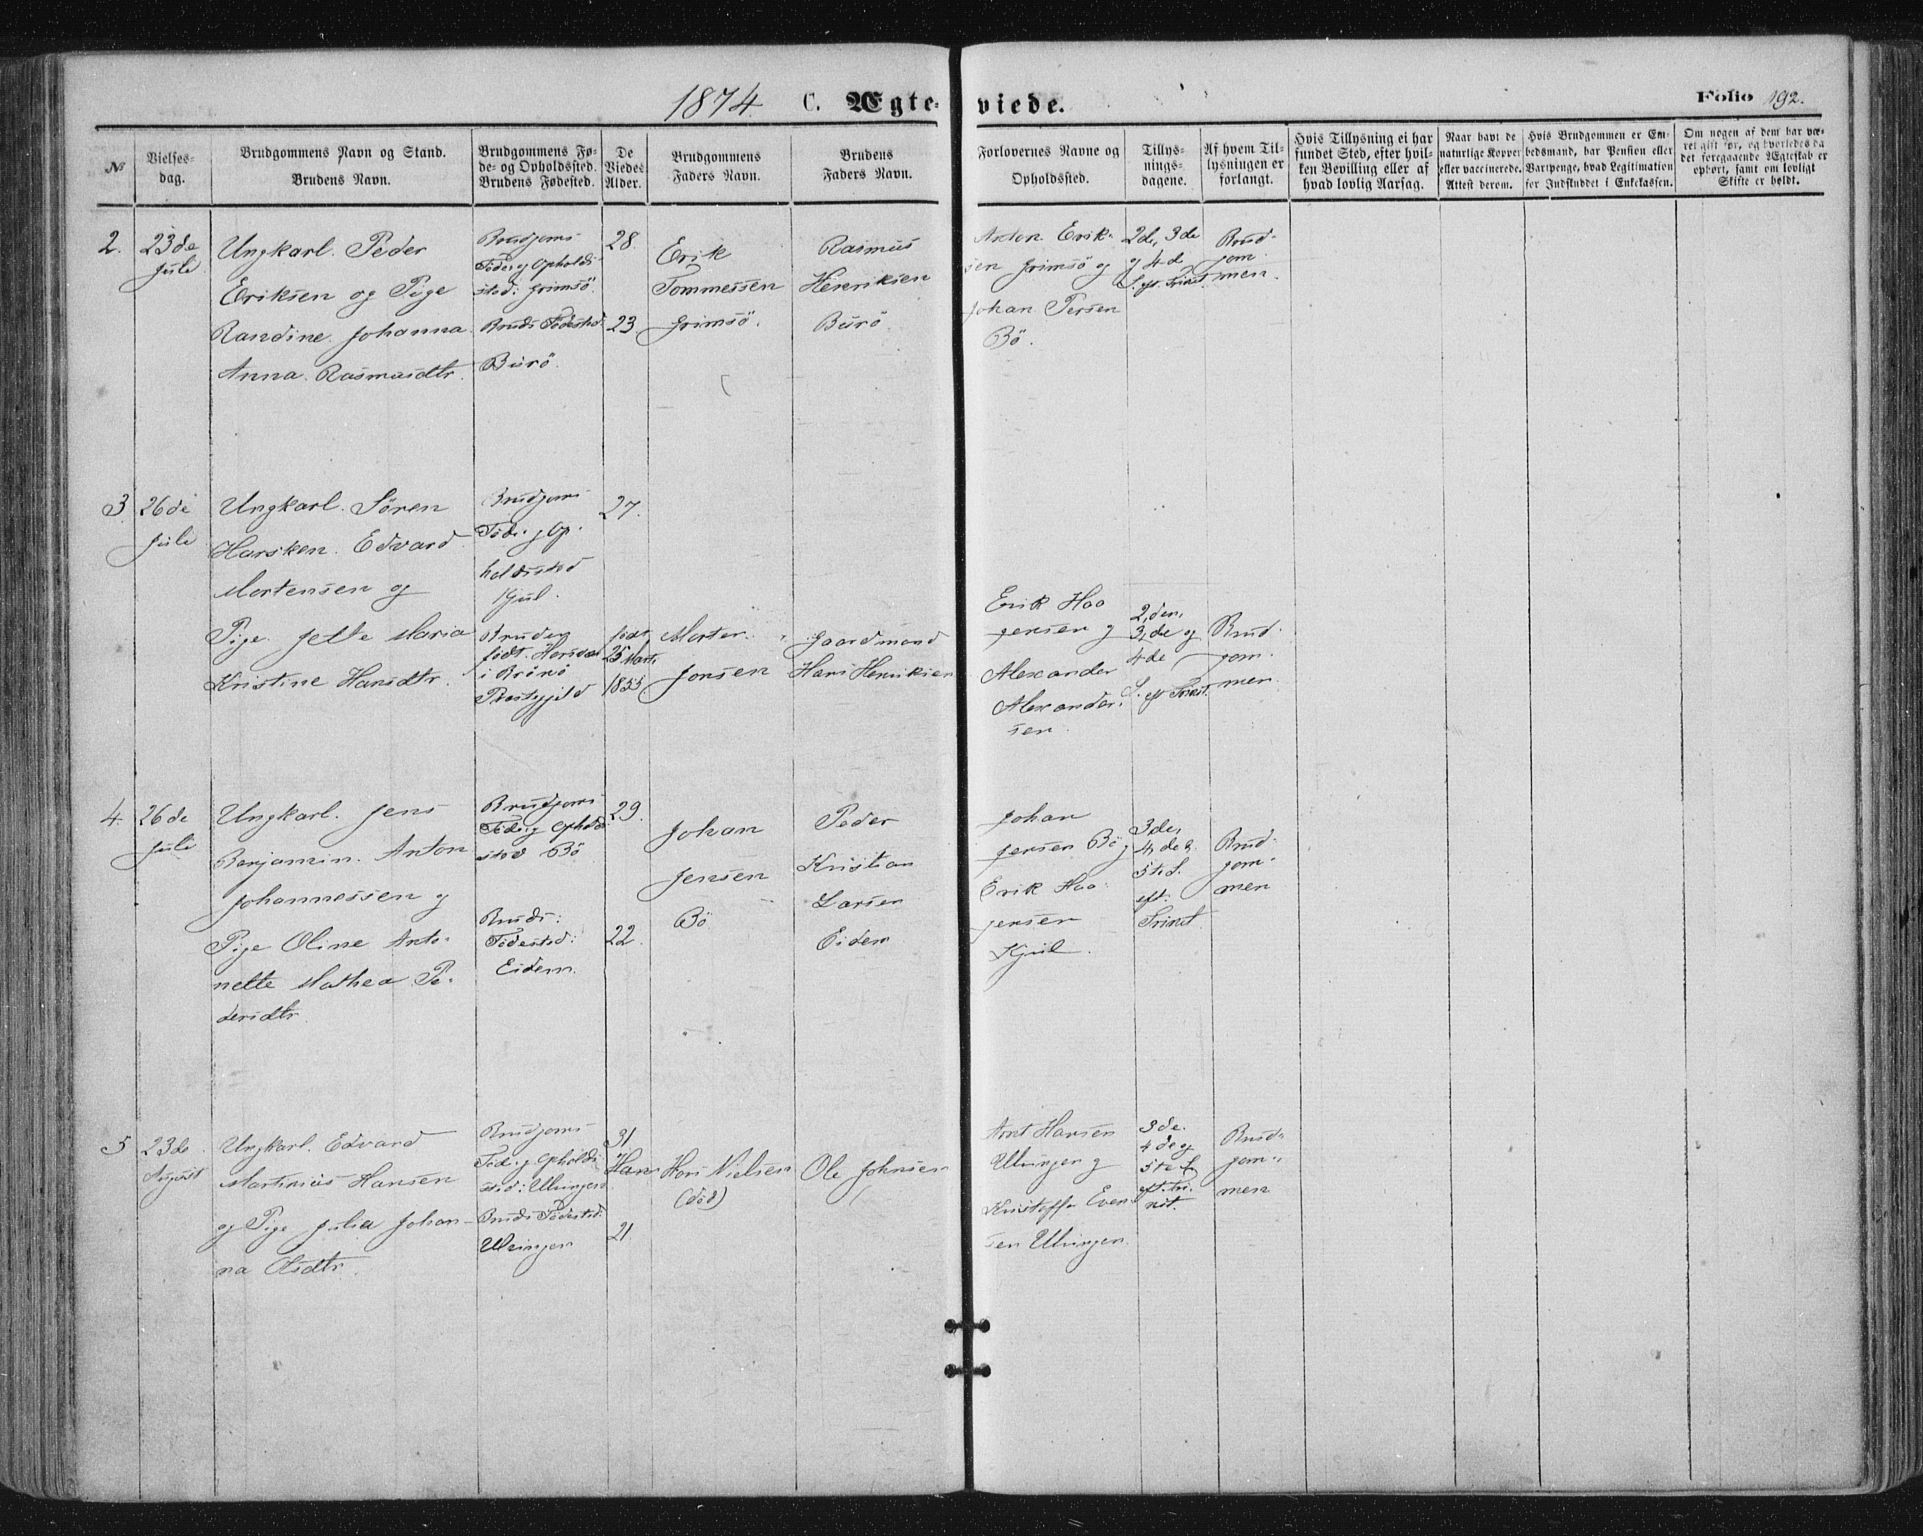 1874 C. Ægte-viede. Folio 192.
№
Vielses-
dag.
Brudgommens Navn og Stand.
Brudens Navn.
Brudgommens Fø-
de- og Opholdssted.
Brudens Fødested.
De
Viedes
Alder.
Brudgommens
Faders Navn.
Brudens
Faders Navn.
Forlovernes Navne og
Opholdssted.
Tillys-
nings-
dagene.
Af hvem Til-
lysningen er
forlangt.
Hvis Tillysning ei har
fundet Sted, efter hvil-
ken Bevilling eller af
hvad lovlig Aarsag.
Naar havt de
naturlige Kopper
eller vaccinerede.
Attest derom.
Hvis Brudgommen er Em-
bedsmand, har Pension eller
Vartpenge, hvad Legitimation
for Indskuddet i Enkekassen.
Om nogen af dem har væ-
ret gift før, og hvorledes da
det foregaaende Ægteskab er
ophört, samt om lovligt
Skifte er holdt.
2.
23de
Juli
Ungkarl. Peder
Eriksen og Pige
Randine Johanna
Anna Rasmusdtr.
Brudgoms
Føde og Opholds-
sted: Grimsö.
Bruds Fødested
Burö.
28.
23
Erik
Tommessen
Grimsö.
Rasmus
Henriksen
Burö
Anton Erik-
sen Grimsö og
Johan Persen
Bö.
2de, 3de
og 4d
S. eft. Trinit.
Brud-
gom-
men.
3.
26de
Juli
Ungkarl. Sören
Hansken Edvard
Mortensen og
Pige Jette Maria
Kristine Hansdtr.
Brudgoms
Føde og Op-
holdssted
Kjul.
Bruden
født
i Brönö
Prestegjeld
27.
født
25 Marts
1855
Morten
Jonsen
Gaardmand
Hans Henriksen
Erik Haa
gensen og
Alexander
Alexander-
sen.
2,den,
3,de og
4de
S. eft Trinit.
Brud-
gom-
men
4.
26de
Juli
Ungkarl. Jens
Benjamin. Anton
Johannessen og
Pige Oline Anto-
nette Mathea Pe-
dersdtr.
Brudgoms
Føde og Opholds
sted Bö
Bruds:
Fødested:
Eidem.
29.
22.
Johan
Jensen
Bö
Peder
Kristian
Larsen
Eidem
Johan
Jensen Bö og
Erik Haa-
gensen
Kjul.
3de,
4,de &
5te S.
eft:
Trinit
Brud-
gom-
men
5
23de
August
Ungkarl. Edvard
Martinius Hansen
og Pige Julia Johan-
na Olsdtr.
Brudgoms
Føde og Opholds-
sted: Ulvingen
Bruds Fødested:
Ulvingen
31
Hans
21.
Hans Nielsen
(död)
Ole Johnsen
Arnt Hansen
Ulvingen og
Kristoffer Even
sen Ulvingen.
3de.
4de og
5te S.
eft. Tri-
nit.
Brud-
gom-
men